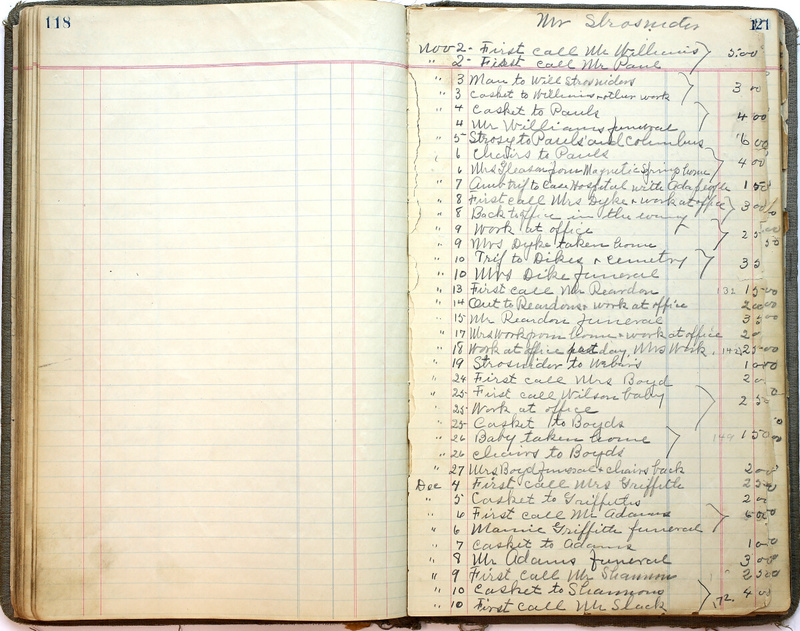 118
Mr Strosnider 121
Nov 2 - First call Mr Williams 5 00
" 2 - First call Mr Paul
" 3 Man to Will Strosniders 3 00
" 3 Casket to Williams + other work
" 4 Casket to Pauls 4 00
" 4 Mr Williams funeral
" 5 Strosy to Pauls and Columbus 6 00
" 6 Chairs to Pauls 4 00
" 6 Mrs Gleason from Magnetic Springs home
" 7 Amb trip to Case Hospital with Ada people 1 50
" 8 First call Mrs Dyke + work at office 3 00
" 8 Back to office in the evening
" 9 Work at office 2 5
" 9 Mrs Dyke taken home
" 10 Trip to Dikes + cemetry 3 5
" 10 Mrs Dike funeral
" 13 First call Mr Reardon 132 1 50
" 14 Out to Reardons + work at office 2 00
" 15 Mr Reardon funeral 3 50
" 17 Mrs Work from home + work at office 2 0
" 18 Work at office day. Mrs Work. 2 5 00
" 19 Strosnider to 1 00
" 24 First call Mrs Boyd 2 0
" 25 First call Wilson baby 2 5 0
" 25 Work at office
" 25 Casket to Boyds
" 26 Baby taken home 149 1 50
" 26 Chairs to Boyds
" 27 Mrs Boyd funeral + chairs back 2 00
Dec 4 First call Mrs Griffith 2 5
" 5 Casket to Griffiths 2 00
" 6 First call Mr Adams
" 6 Mamie Griffith funeral
" 7 Casket to Adams 1 00
" 8 Mr Adams funeral 3 00
" 9 First call Mr Shannon 2 50
" 10 Casket to Shannons 172. 4 00
" 10 First call Mr Slack